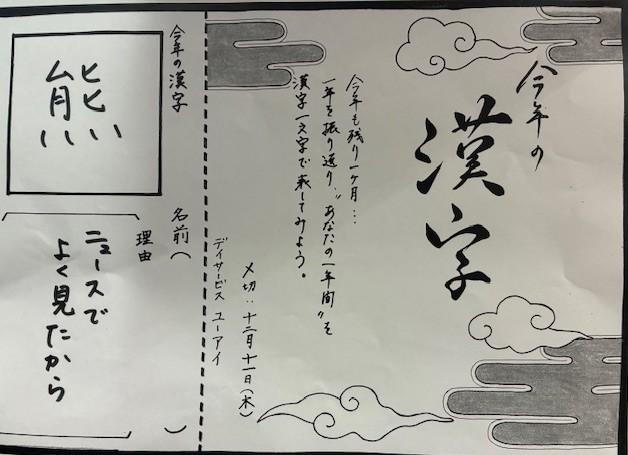 今年の
漢字
今年も残り一ヶ月…
一年を振り返り、〝あなたの一年間〟を
漢字一文字で表してみよう。
〆切：十二月十一日（木）
デイサービス ユーアイ
今年の漢字
熊
名前（　）
理由
ニュースで
よく見たから